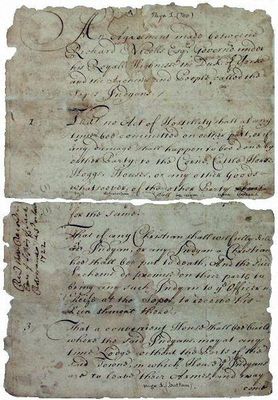 An Agreement made betweene
Richard Nicolls Esqr. Governor under
his Royall Highness the Duke of Yorke
and the Sachims and People called the
Sopes Indyans
1 That no Act of Hostillity shall at any
time bee committed on either part, or if
any damage shall happen to bee done by
either Party, to the Corne, Cattle, Horses
Hoggs, Houses, or any other Goods
whatsoever, of the other Party
for the same.
That if any Christian shall wilfully kill
an Indyan, or any Indyan a Christian
hee shall bee put to death. And the said
Sachims do promise on their parts to
bring any such Indyan to ye Officer in
Cheife at the Sopes to receive his
Punishment there.
3 That a convenient House shall bee built
where the said Indyans may at any
time Lodge without the Ports of the
said Towne, in which House ye Indyans
are to leave their Armes, and may
come